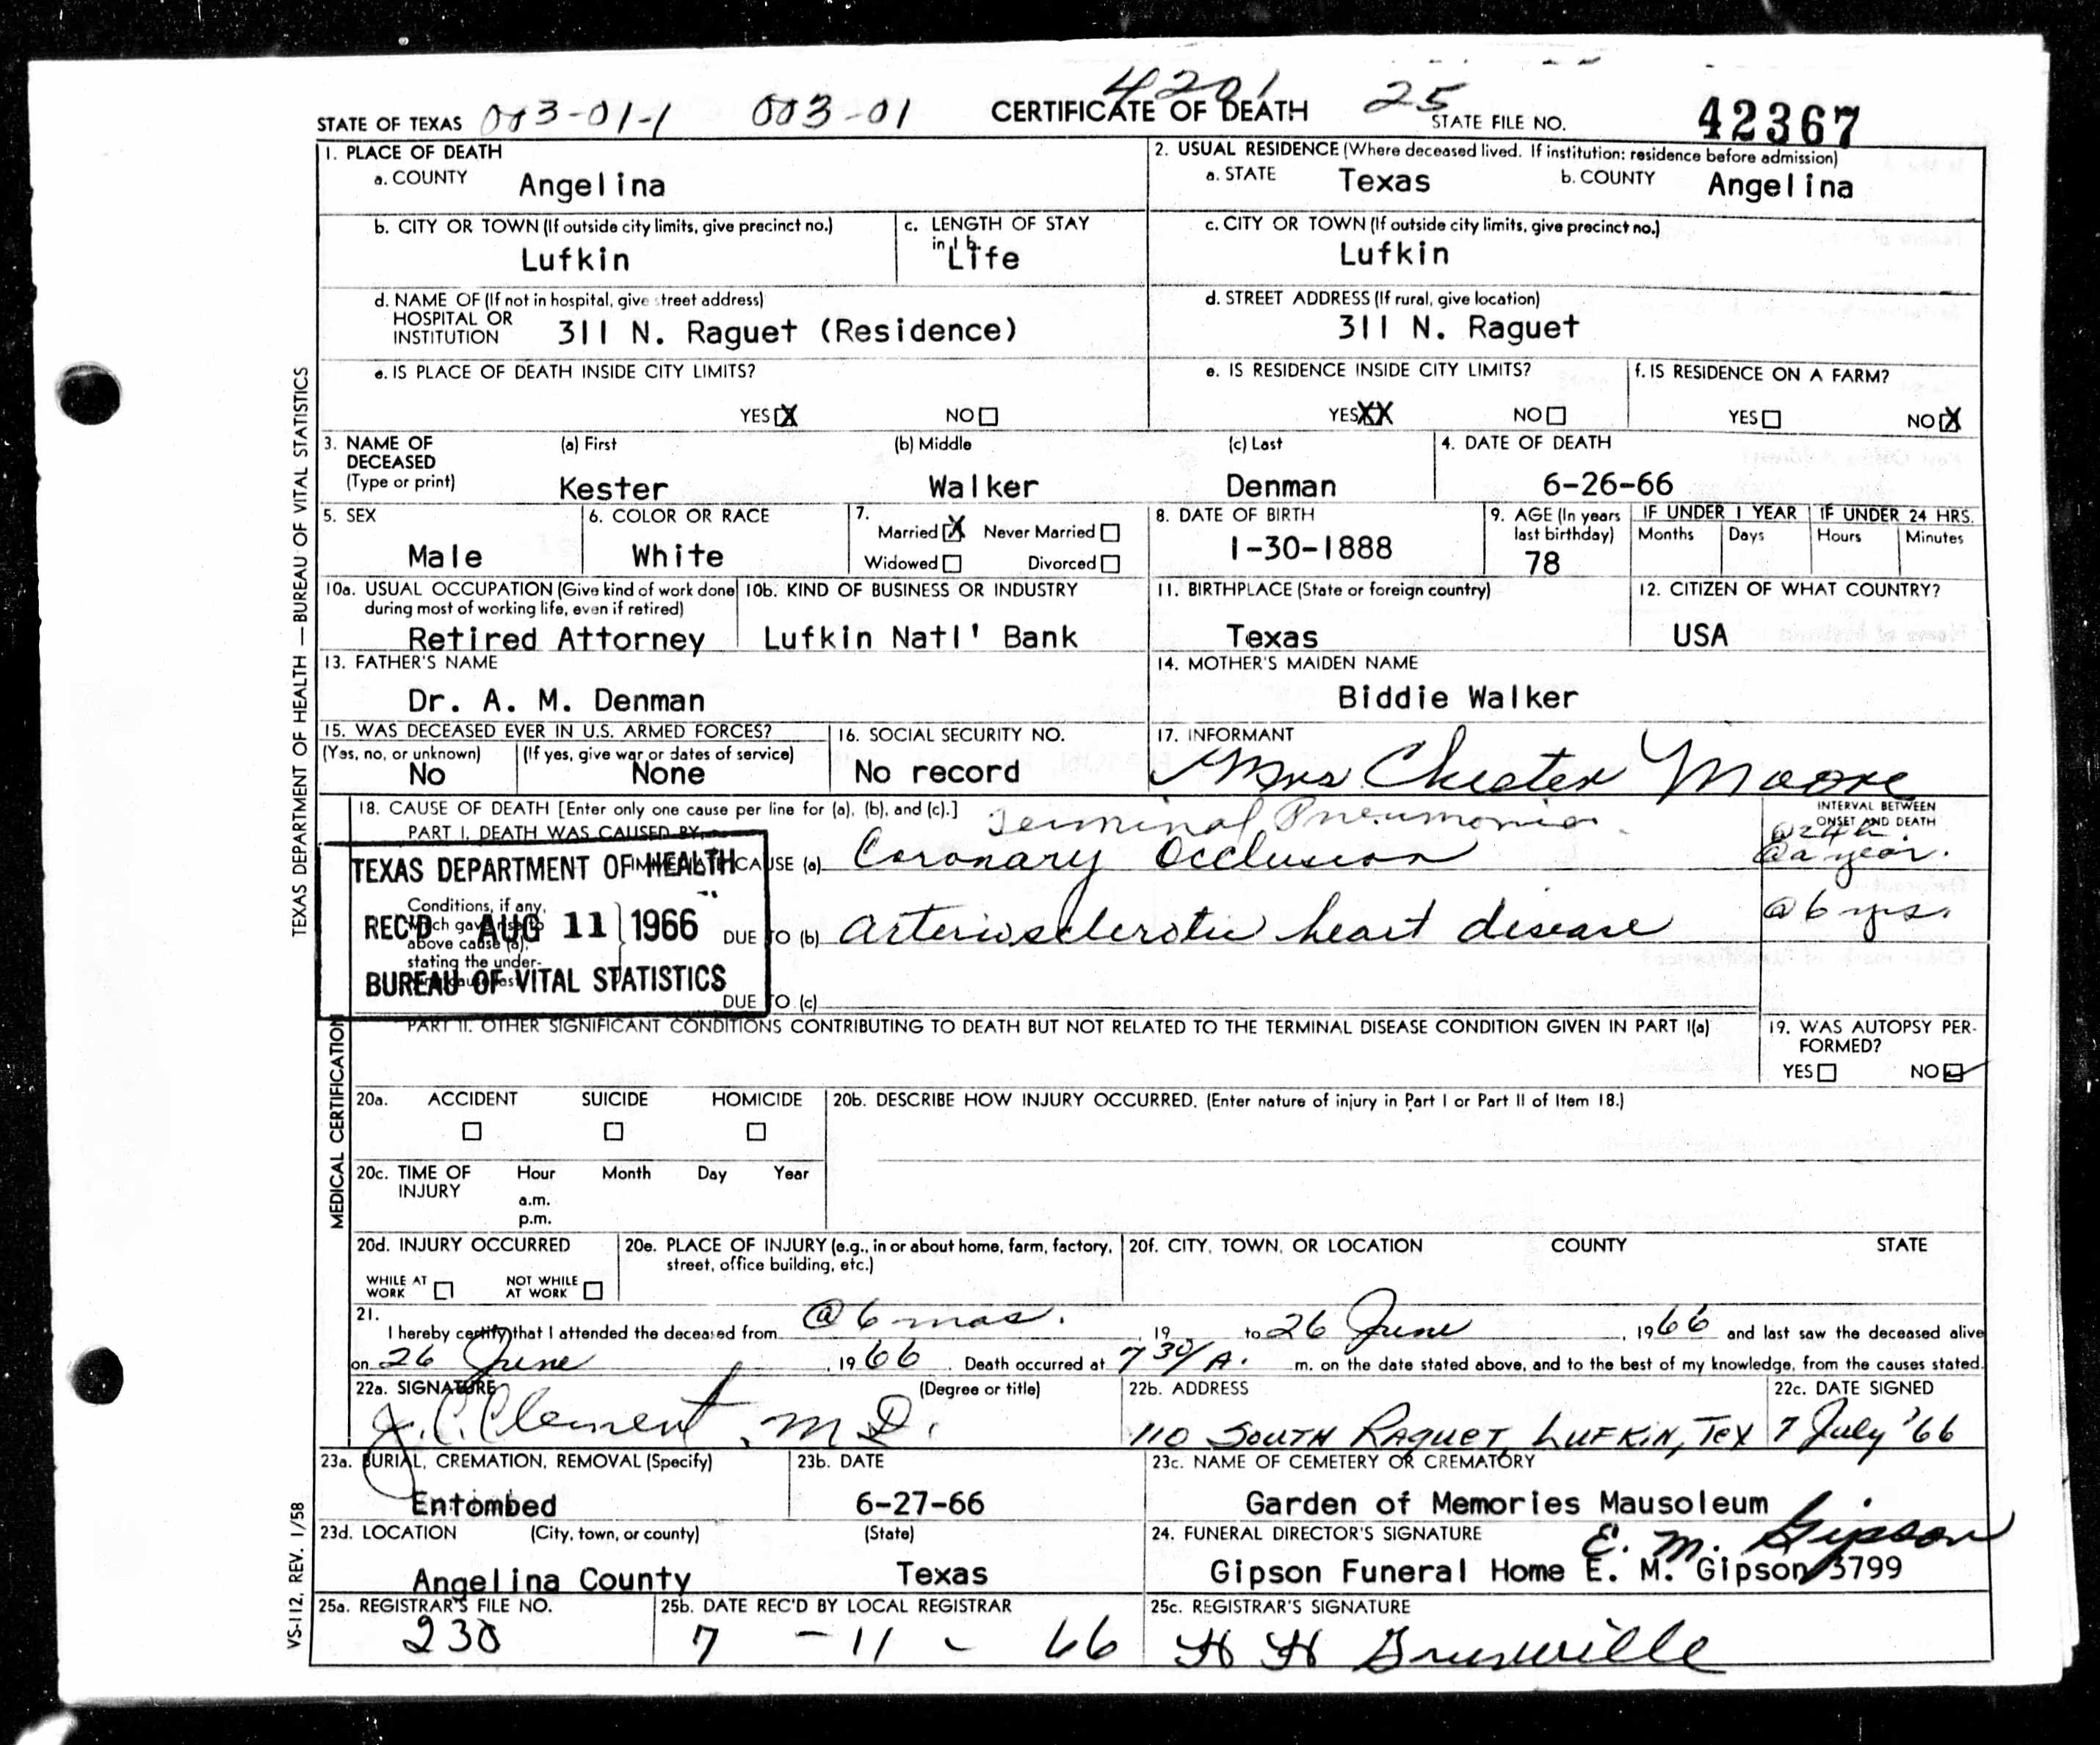 4201
STATE OF TEXAS 003-01-1 003-01 CERTIFICATE OF DEATH 25 STATE FILE NO. 42367
1. PLACE OF DEATH
a. COUNTY Angelina
2. USUAL RESIDENCE (Where deceased lived. If institution: residence before admission)
a. STATE Texas b. COUNTY Angelina
b. CITY OR TOWN (If outside city limits, give precinct no.)
Lufkin
c. LENGTH OF STAY
in 1 b.
Life
c. CITY OR TOWN (If outside city limits, give precinct no.)
Lufkin
d. NAME OF (If not in hospital, give street address)
HOSPITAL OR
INSTITUTION 311 N. Raguet (Residence)
d. STREET ADDRESS (If rural, give location)
311 N. Raguet
e. IS PLACE OF DEATH INSIDE CITY LIMITS?
YES X NO
e. IS RESIDENCE INSIDE CITY LIMITS?
YES XX NO
f. IS RESIDENCE ON A FARM?
YES NO X
3. NAME OF DECEASED (Type or print)
(a) First (b) Middle (c) Last
Kester Walker Denman
4. DATE OF DEATH
6-26-66
5. SEX
Male
6. COLOR OR RACE
White
7.
Married X Never Married
Widowed Divorced
8. DATE OF BIRTH
1-30-1888
9. AGE (In years
last birthday)
78
IF UNDER 1 YEAR IF UNDER 24 HRS.
Months Days Hours Minutes
10a. USUAL OCCUPATION (Give kind of work done
during most of working life, even if retired)
Retired Attorney
10b. KIND OF BUSINESS OR INDUSTRY
Lufkin Natl' Bank
11. BIRTHPLACE (State or foreign country)
Texas
12. CITIZEN OF WHAT COUNTRY?
USA
13. FATHER'S NAME
Dr. A. M. Denman
14. MOTHER'S MAIDEN NAME
Biddie Walker
15. WAS DECEASED EVER IN U.S. ARMED FORCES?
(Yes, no, or unknown) (If yes, give war or dates of service)
No None
16. SOCIAL SECURITY NO.
No record
17. INFORMANT
Mrs Chester Moore
18. CAUSE OF DEATH [Enter only one cause per line for (a), (b), and (c).]
PART I. DEATH WAS CAUSED BY:
Terminal Pneumonia
INTERVAL BETWEEN
ONSET AND DEATH
@ 24 h.
IMMEDIATE CAUSE (a) Coronary Occlusion @ a year.
Conditions, if any,
which gave rise to
above cause (a),
stating the under-
lying cause last
DUE TO (b) arteriosclerotic heart disease @ 6 yrs.
DUE TO (c)
TEXAS DEPARTMENT OF HEALTH
REC'D AUG 11 1966
BUREAU OF VITAL STATISTICS
PART II. OTHER SIGNIFICANT CONDITIONS CONTRIBUTING TO DEATH BUT NOT RELATED TO THE TERMINAL DISEASE CONDITION GIVEN IN PART I(a)
19. WAS AUTOPSY PER-
FORMED?
YES NO
20a. ACCIDENT SUICIDE HOMICIDE
20b. DESCRIBE HOW INJURY OCCURRED. (Enter nature of injury in Part I or Part II of Item 18.)
20c. TIME OF
INJURY
Hour Month Day Year
a.m.
p.m.
20d. INJURY OCCURRED
WHILE AT
WORK
NOT WHILE
AT WORK
20e. PLACE OF INJURY (e.g., in or about home, farm, factory,
street, office building, etc.)
20f. CITY, TOWN, OR LOCATION COUNTY STATE
21.
I hereby certify that I attended the deceased from @ 6 mos. , 19 to 26 June , 1966 and last saw the deceased alive
on 26 June , 1966 . Death occurred at 7 30/A. m. on the date stated above, and to the best of my knowledge, from the causes stated.
22a. SIGNATURE (Degree or title)
J. C. Clement, M D.
22b. ADDRESS
110 SOUTH RAGUET, LUFKIN, TEX
22c. DATE SIGNED
7 July '66
23a. BURIAL, CREMATION, REMOVAL (Specify)
Entombed
23b. DATE
6-27-66
23c. NAME OF CEMETERY OR CREMATORY
Garden of Memories Mausoleum
23d. LOCATION (City, town, or county) (State)
Angelina County Texas
24. FUNERAL DIRECTOR'S SIGNATURE
E. M. Gipson
Gipson Funeral Home E. M. Gipson 3799
25a. REGISTRAR'S FILE NO.
230
25b. DATE REC'D BY LOCAL REGISTRAR
7 - 11 - 66
25c. REGISTRAR'S SIGNATURE
H H
TEXAS DEPARTMENT OF HEALTH — BUREAU OF VITAL STATISTICS
MEDICAL CERTIFICATION
VS-112, REV. 1/58